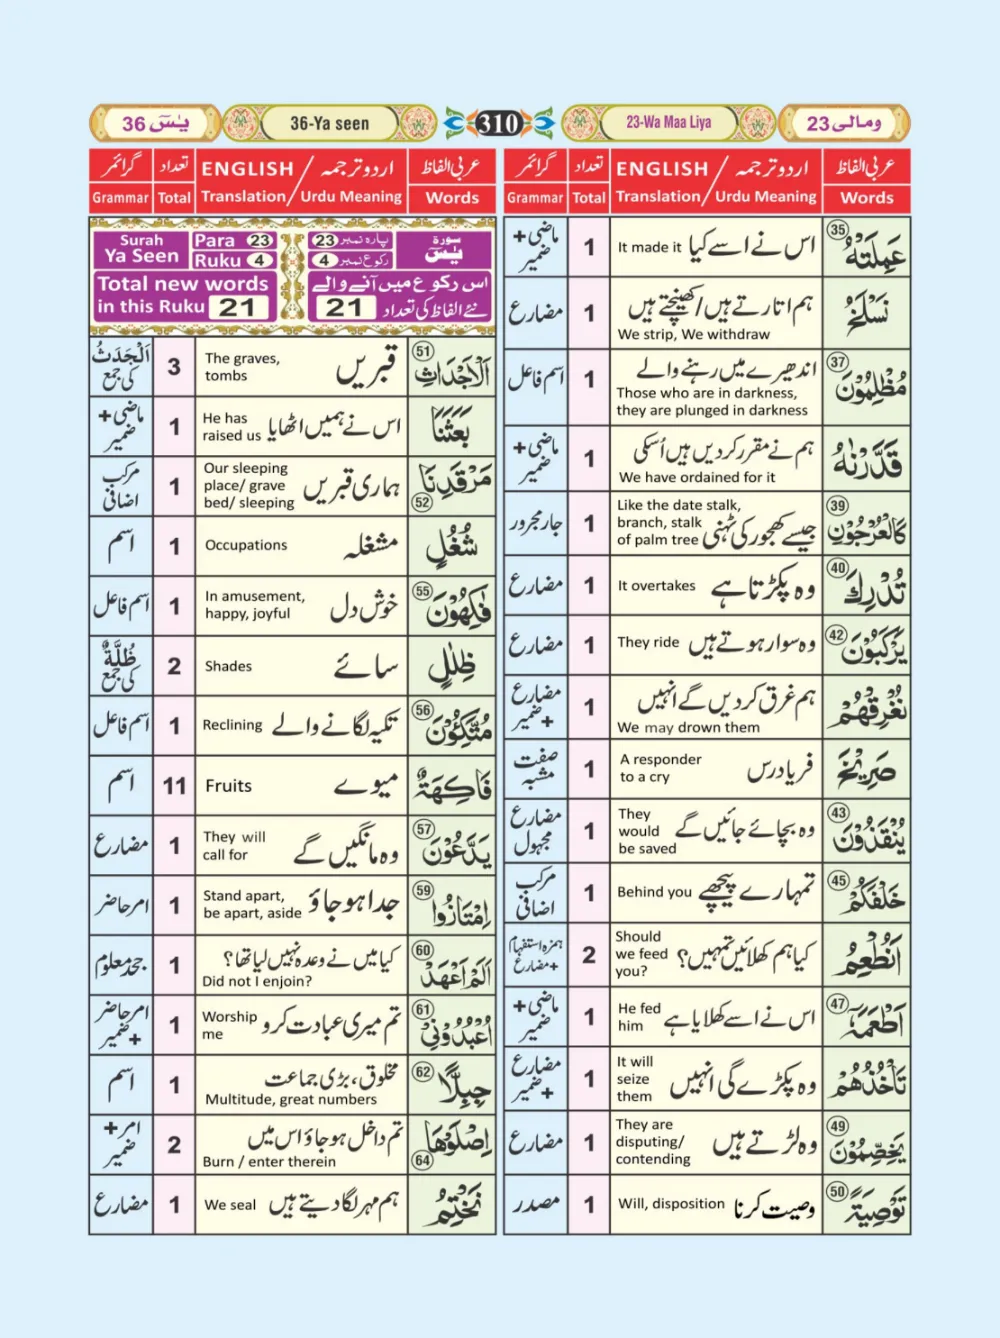 36 يٰسٓ
36-Ya seen
310
23-Wa Maa Liya
ومالی 23
عربی الفاظ
اردو ترجمہ / ENGLISH
تعداد
گرائمر
Words
Translation / Urdu Meaning
Total
Grammar
35 عَمِلَتْهُ
اس نے اسے کیا It made it
1
ماضی + ضمیر
نَسْلَخُ
ہم اتارتے ہیں/کھینچتے ہیں
We strip, We withdraw
1
مضارع
37 مُظْلِمُوْنَ
اندھیرے میں رہنے والے
Those who are in darkness,
they are plunged in darkness
1
اسم فاعل
قَدَّرْنٰهُ
ہم نے مقرر کردیں ہیں اُسکی
We have ordained for it
1
ماضی + ضمیر
39 كَالْعُرْجُوْنِ
جیسے کھجور کی ٹہنی
Like the date stalk,
branch, stalk
of palm tree
1
جار مجرور
40 تُدْرِكَ
وہ پکڑتا ہے It overtakes
1
مضارع
42 يَرْكَبُوْنَ
وہ سوار ہوتے ہیں They ride
1
مضارع
نُغْرِقْهُمْ
ہم غرق کردیں گے انہیں
We may drown them
1
مضارع + ضمیر
صَرِيْخَ
فریاد رس
A responder
to a cry
1
صفت مشبہ
43 يُنْقَذُوْنَ
وہ بچائے جائیں گے
They
would
be saved
1
مضارع مجہول
45 خَلْفَكُمْ
تمہارے پیچھے Behind you
1
مرکب اضافی
اَنُطْعِمُ
کیا ہم کھلائیں تمہیں؟
Should
we feed
you?
2
ہمزہ استفہام + مضارع
47 اَطْعَمَهٗ
اس نے اسے کھلایا ہے
He fed
him
1
ماضی + ضمیر
تَاْخُذُهُمْ
وہ پکڑے گی انہیں
It will
seize
them
1
مضارع + ضمیر
49 يَخِصِّمُوْنَ
وہ لڑتے ہیں
They are
disputing/
contending
1
مضارع
50 تَوْصِيَةً
وصیت کرنا Will, disposition
1
مصدر
عربی الفاظ
اردو ترجمہ / ENGLISH
تعداد
گرائمر
Words
Translation / Urdu Meaning
Total
Grammar
Surah
Ya Seen
Para 23
Ruku 4
پارہ نمبر 23
رکوع نمبر 4
سورۃ
يٰسٓ
Total new words
in this Ruku 21
اس رکوع میں آنے والے
نئے الفاظ کی تعداد 21
51 اَلْاَجْدَاثِ
قبریں
The graves,
tombs
3
اَلْجَدَثُ کی جمع
بَعَثَنَا
اس نے ہمیں اٹھایا
He has
raised us
1
ماضی + ضمیر
مَرْقَدِنَا 52
ہماری قبریں
Our sleeping
place/ grave
bed/ sleeping
1
مرکب اضافی
شُغُلٍ
مشغلہ Occupations
1
اسم
55 فٰكِهُوْنَ
خوش دل
In amusement,
happy, joyful
1
اسم فاعل
ظِلٰلٍ
سائے Shades
2
ظُلَّةٌ کی جمع
56 مُتَّكِئُوْنَ
تکیہ لگانے والے Reclining
1
اسم فاعل
فَاكِهَةٌ
میوے Fruits
11
اسم
57 يَدَّعُوْنَ
وہ مانگیں گے
They will
call for
1
مضارع
59 اِمْتَازُوا
جدا ہو جاؤ
Stand apart,
be apart, aside
1
امر حاضر
60 اَلَمْ اَعْهَدْ
کیا میں نے وعدہ نہیں لیا تھا؟
Did not I enjoin?
1
جحد معلوم
61 اُعْبُدُوْنِيْ
تم میری عبادت کرو
Worship
me
1
امر حاضر + ضمیر
62 جِبِلًّا
مخلوق، بڑی جماعت
Multitude, great numbers
1
اسم
اِصْلَوْهَا 64
تم داخل ہو جاؤ اس میں
Burn / enter therein
2
امر + ضمیر
نَخْتِمُ
ہم مہر لگا دیتے ہیں We seal
1
مضارع